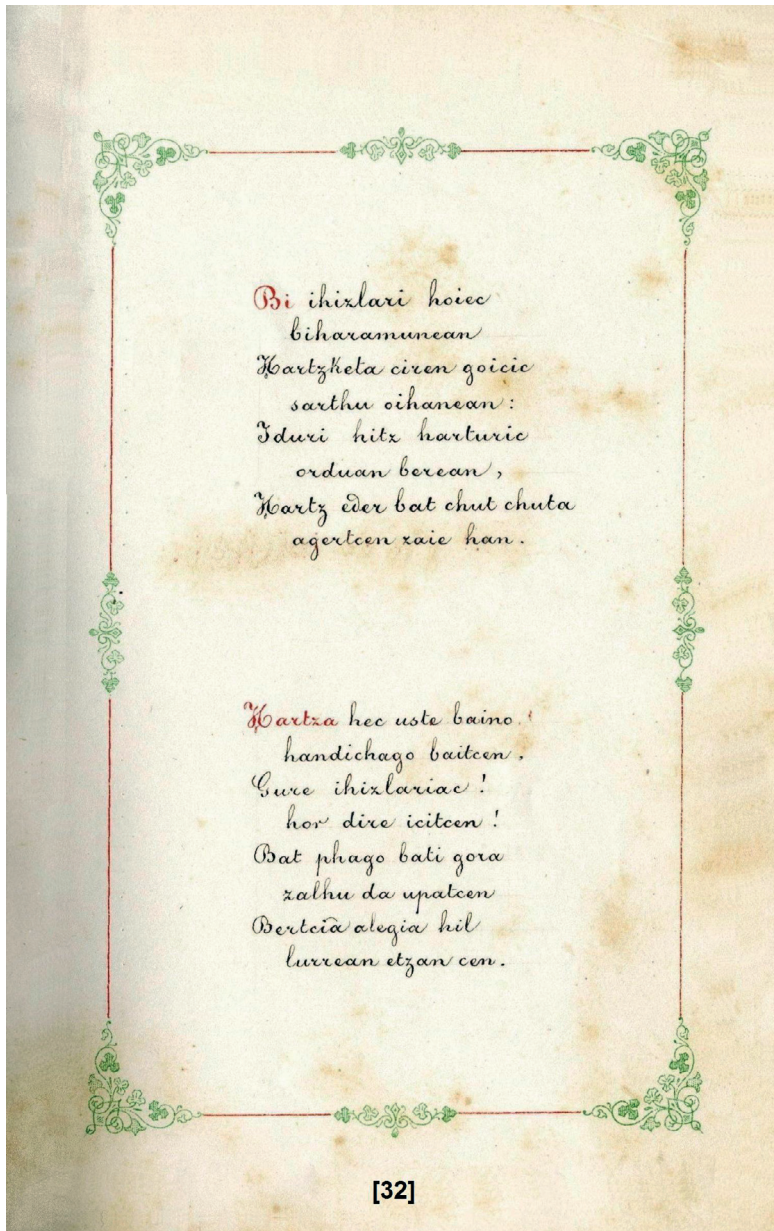 Bi ihizlari hoiec
biharamunean
Hartzketa ciren goicic
sarthu oihanean :
Iduri hitz harturic
orduan berean ,
Hartz eder bat chut chuta
agertcen zaie han .
Hartza hec uste baino
handichago baitcen ,
Gure ihizlariac !
hor dire icitcen !
Bat phago bati gora
zalhu da upatcen
Bertcia alegia hil
lurrean etzan cen .
[32]